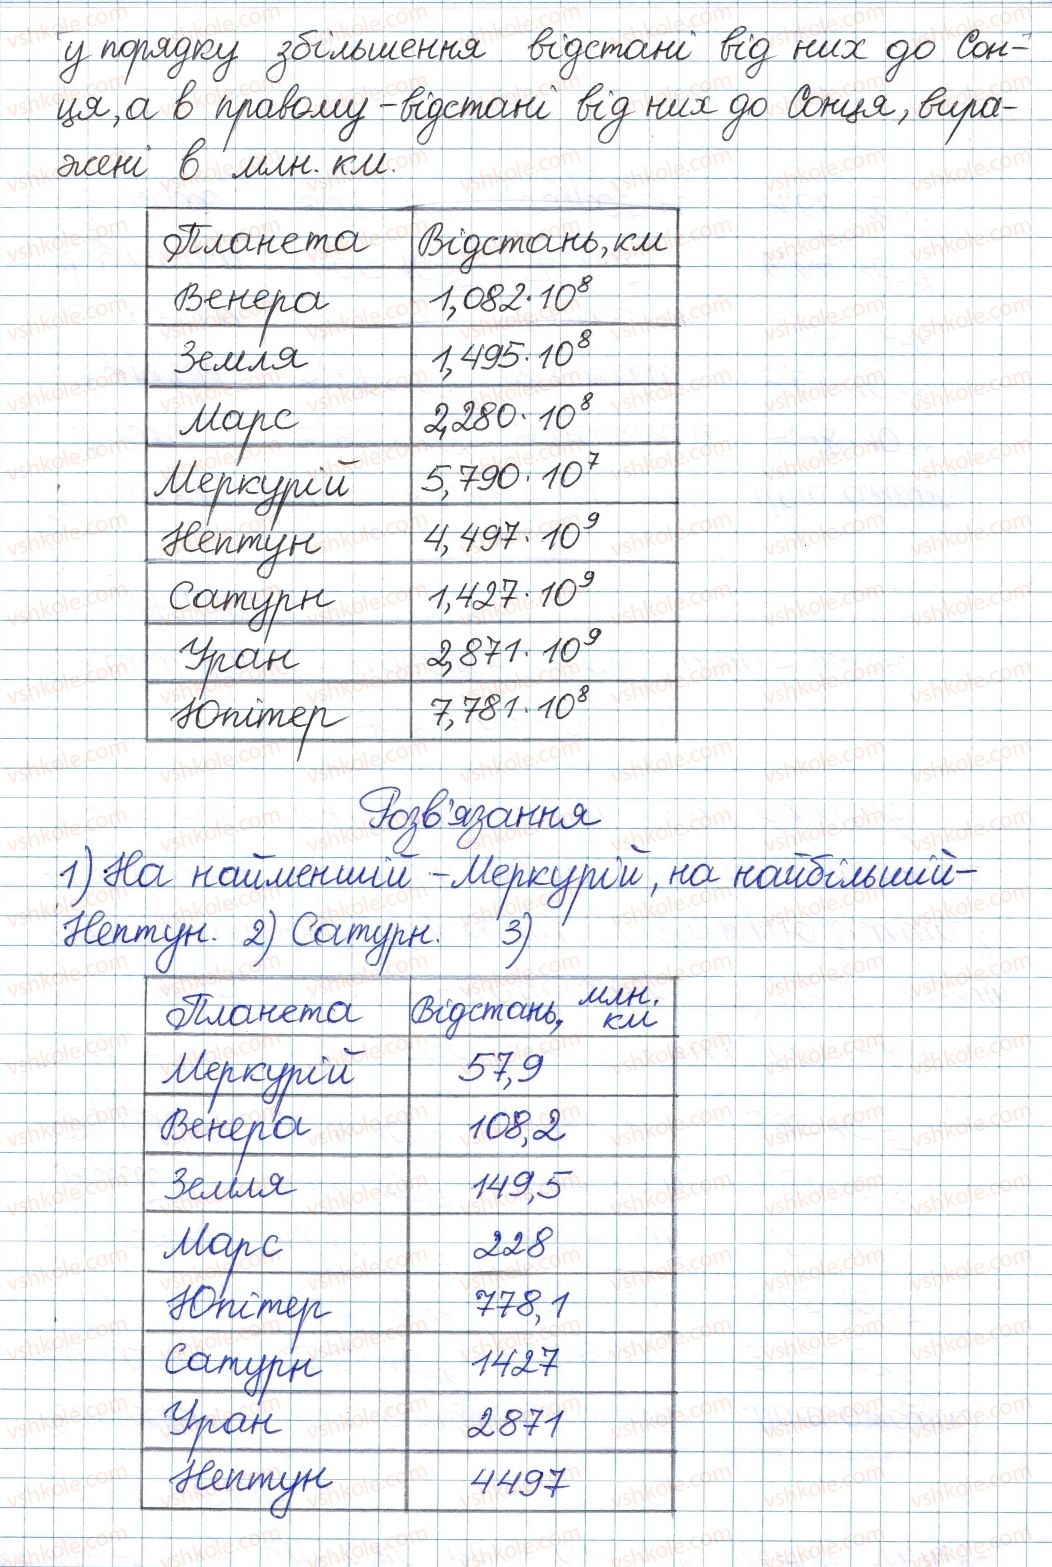 у порядку збільшення відстані від них до Сон-
ця, а в правому - відстані від них до Сонця, вира-
жені в млн. км.
Планета Відстань, км
Венера 1,082·10⁸
Земля 1,495·10⁸
Марс 2,280·10⁸
Меркурій 5,790·10⁷
Нептун 4,497·10⁹
Сатурн 1,427·10⁹
Уран 2,871·10⁹
Юпітер 7,781·10⁸
Розв'язання
1) На найменшій - Меркурій, на найбільшій -
Нептун. 2) Сатурн. 3)
Планета Відстань, млн. км
Меркурій 57,9
Венера 108,2
Земля 149,5
Марс 228
Юпітер 778,1
Сатурн 1427
Уран 2871
Нептун 4497